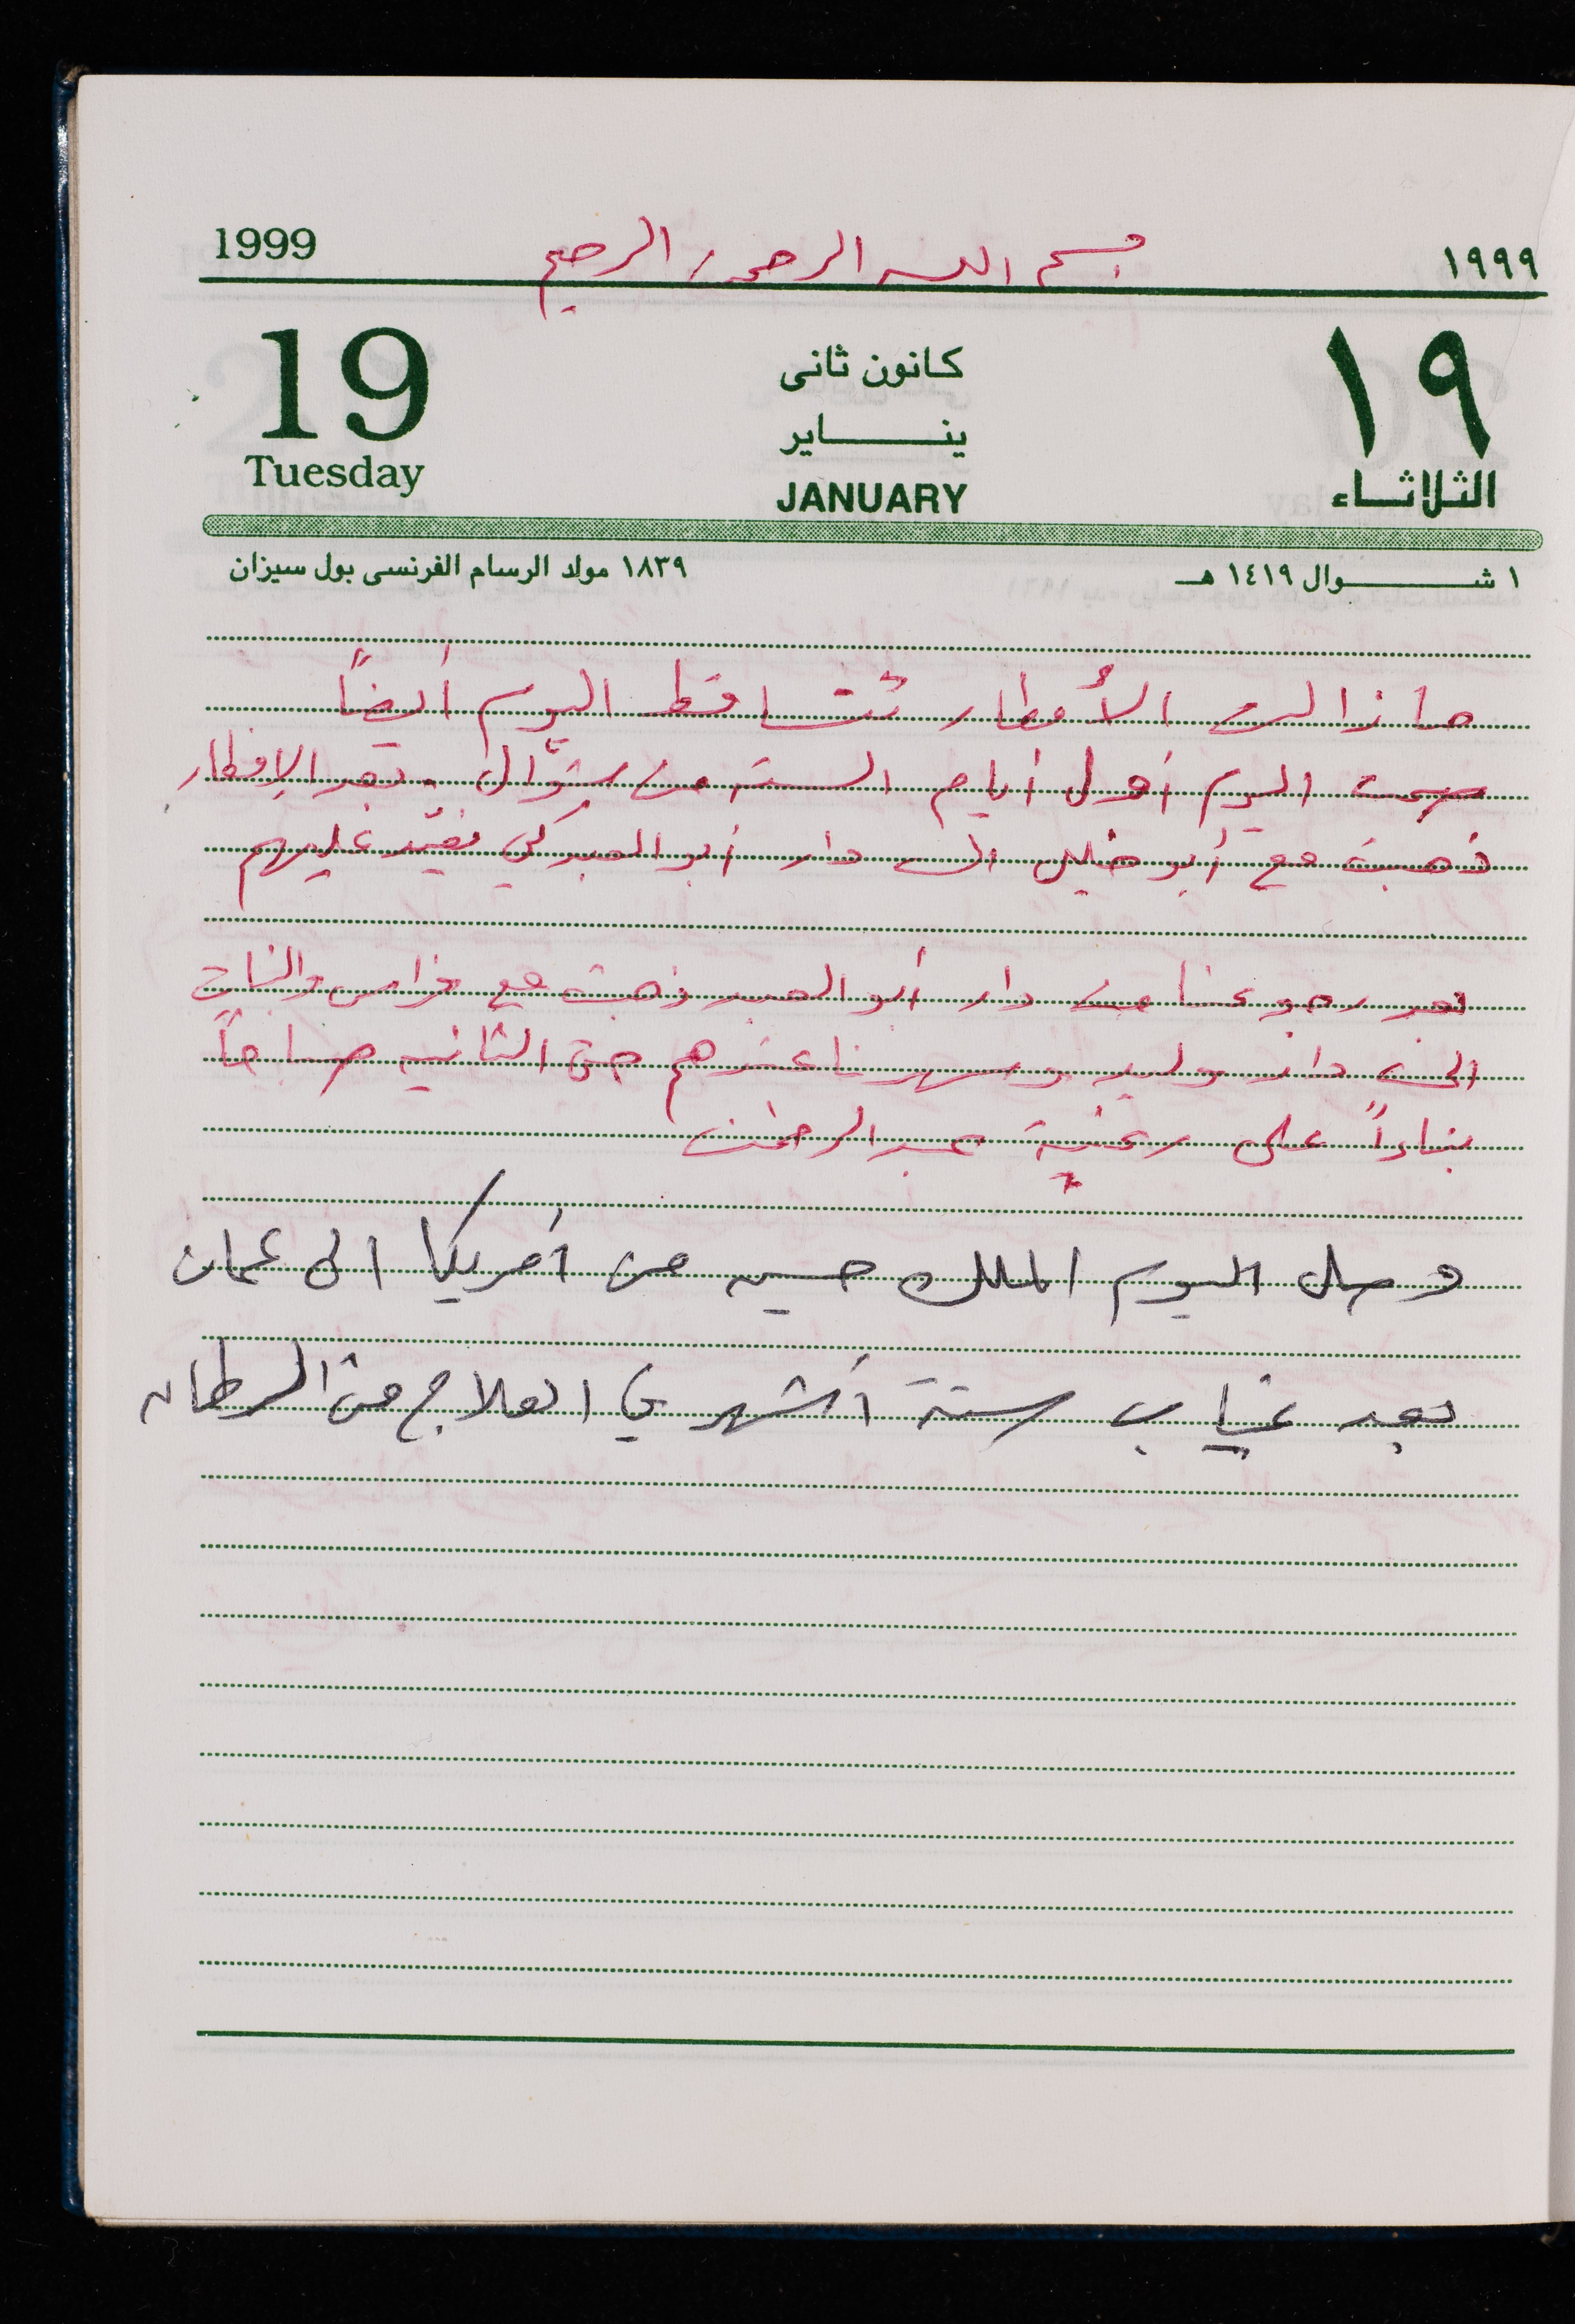 1999
بسم الله الرحمن الرحيم
١٩٩٩
19
كانون ثانى
١٩
Tuesday
ينـــاير
الثلاثـاء
JANUARY
١ شـــوال ١٤١٩ هـ
١٨٣٩ مولد الرسام الفرنسى بول سيزان
ما زالت الأمطار تتساقط اليوم أيضاً
صمت اليوم أول أيام الستة من شوّال. بعد الإفطار
ذهبت مع أبو خليل الى دار أبو العبد كي نعيّد عليهم
بعد رجوعنا من دار أبو العبد ذهبت مع فراس والبنات
الى دار وليد وسهرنا عندهم حتى الثانيه صباحاً
بناءاً على رغبة عبدالرحمن
وصل اليوم الملك حسين من أمريكا الى عمان
بعد غياب ستة أشهر في العلاج من السرطان